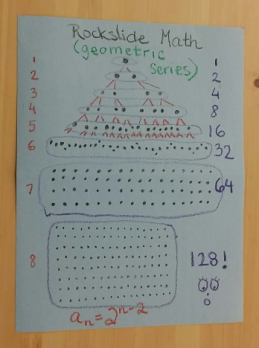 Rockslide Math
(geometric
series)
1 1
2 2
3 4
4 8
5 16
6 32
7 64
8 128!
aₙ=2ⁿ⁻²